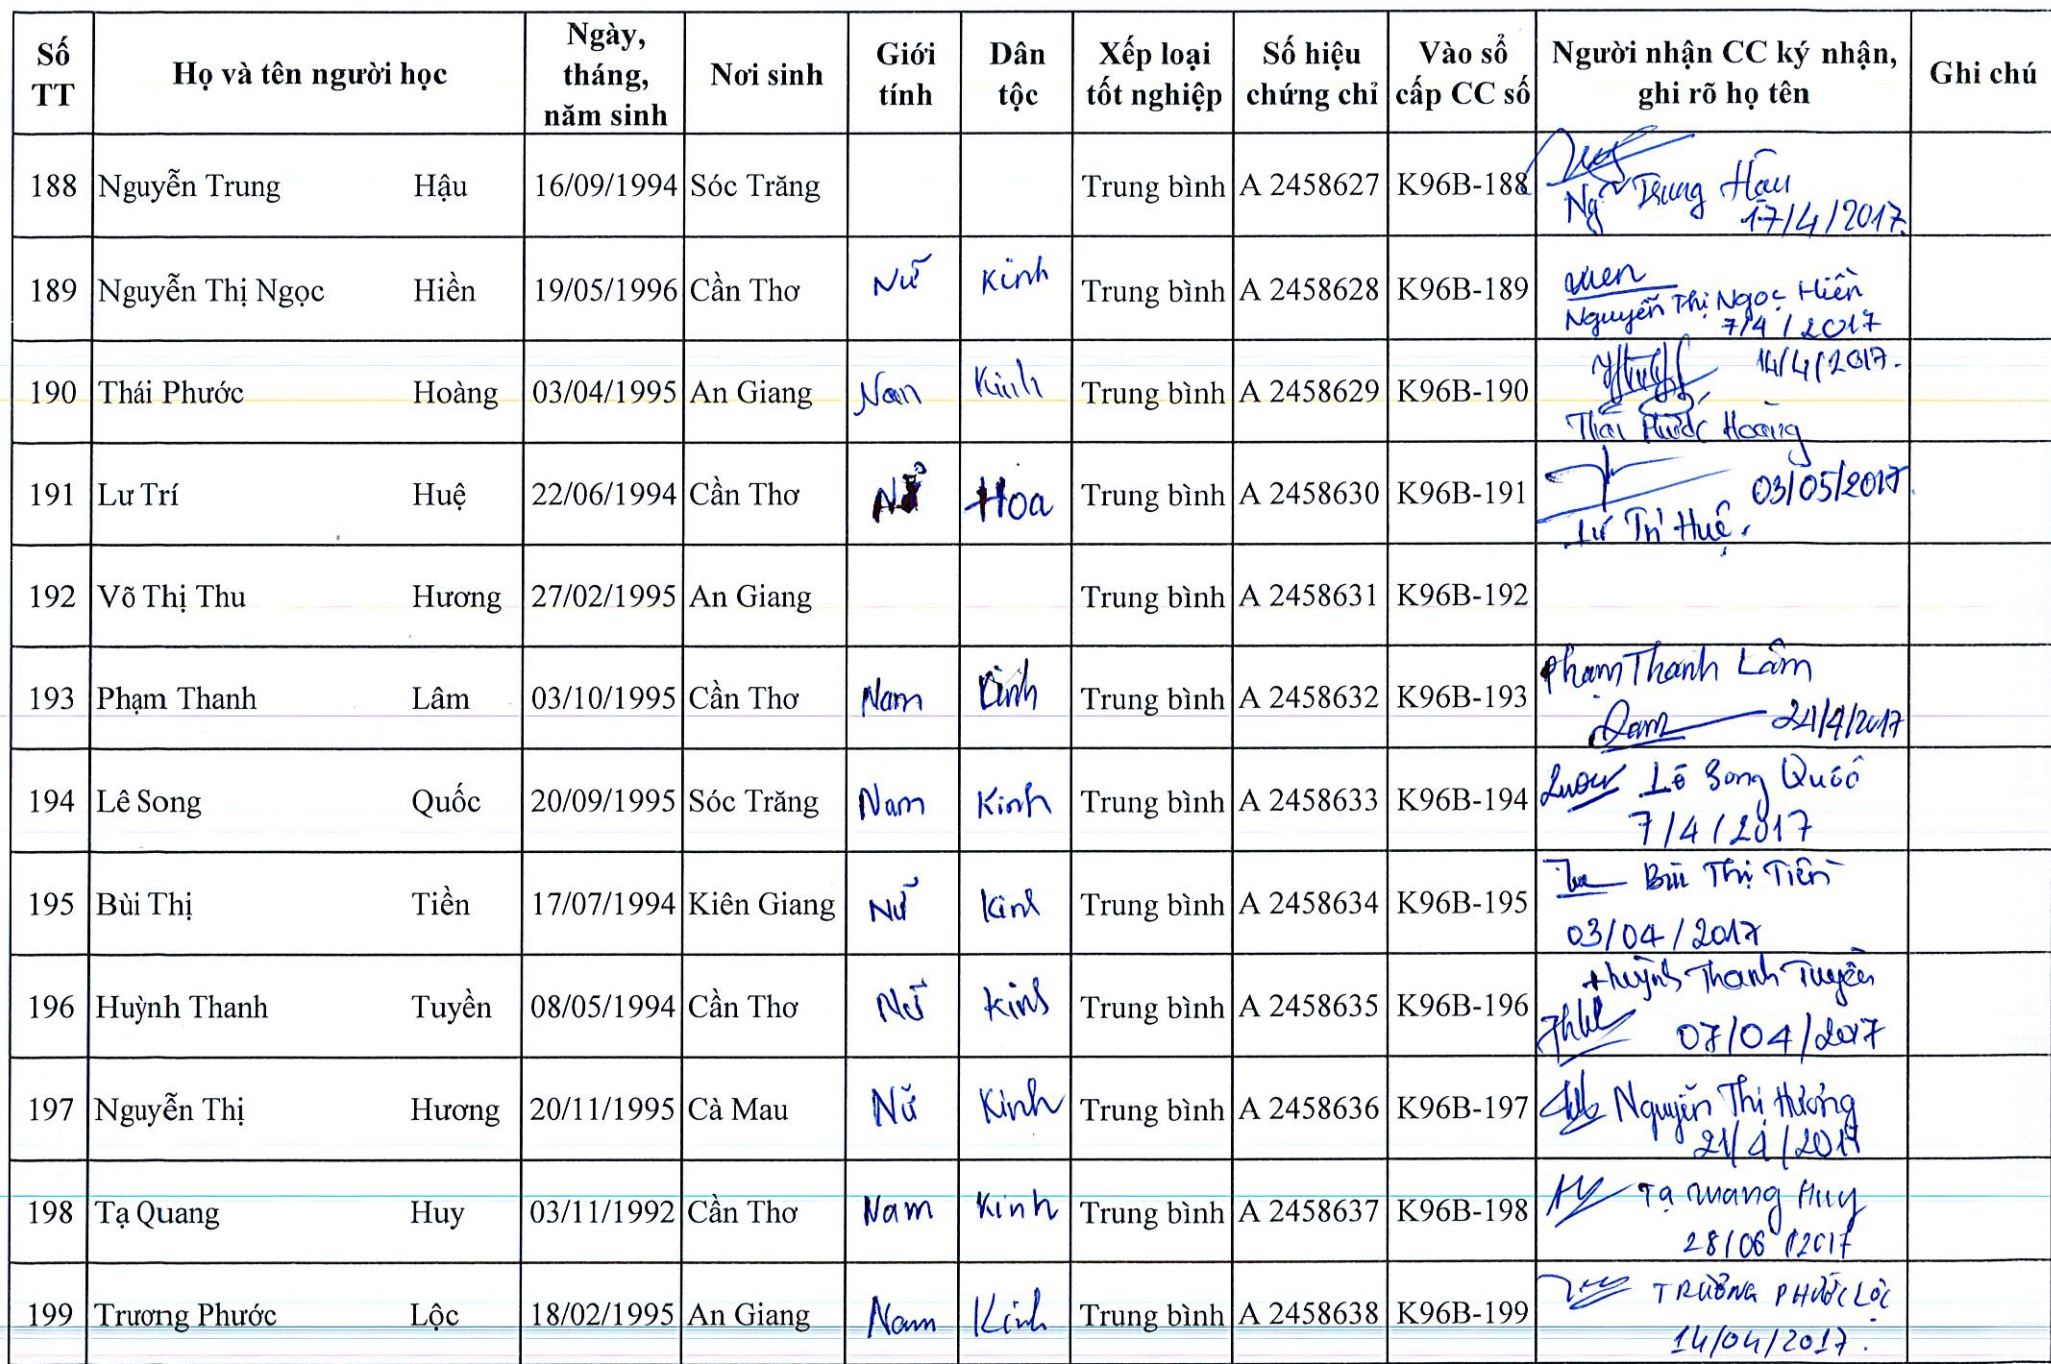 Số TT Họ và tên người học Ngày, tháng, năm sinh Nơi sinh Giới tính Dân tộc Xếp loại tốt nghiệp Số hiệu chứng chỉ Vào sổ cấp CC số Người nhận CC ký nhận, ghi rõ họ tên Ghi chú
188 Nguyễn Trung Hậu 16/09/1994 Sóc Trăng Trung bình A 2458627 K96B-188
Ng Trung Hậu
17/4/2017.
189 Nguyễn Thị Ngọc Hiền 19/05/1996 Cần Thơ Nữ Kinh Trung bình A 2458628 K96B-189
Nguyễn Thị Ngọc Hiền
7/4/2017
190 Thái Phước Hoàng 03/04/1995 An Giang Nam Kinh Trung bình A 2458629 K96B-190
14/4/2017.
Thái Phước Hoàng
191 Lư Trí Huệ 22/06/1994 Cần Thơ Nữ Hoa Trung bình A 2458630 K96B-191
03/05/2017.
Lư Trí Huệ.
192 Võ Thị Thu Hương 27/02/1995 An Giang Trung bình A 2458631 K96B-192
193 Phạm Thanh Lâm 03/10/1995 Cần Thơ Nam Kinh Trung bình A 2458632 K96B-193
Phạm Thanh Lâm
24/4/2017
194 Lê Song Quốc 20/09/1995 Sóc Trăng Nam Kinh Trung bình A 2458633 K96B-194
Lê Song Quốc
7/4/2017
195 Bùi Thị Tiền 17/07/1994 Kiên Giang Nữ Kinh Trung bình A 2458634 K96B-195
Bùi Thị Tiền
03/04/2017
196 Huỳnh Thanh Tuyền 08/05/1994 Cần Thơ Nữ Kinh Trung bình A 2458635 K96B-196
Huỳnh Thanh Tuyền
07/04/2017
197 Nguyễn Thị Hương 20/11/1995 Cà Mau Nữ Kinh Trung bình A 2458636 K96B-197
Nguyễn Thị Hương
21/4/2017
198 Tạ Quang Huy 03/11/1992 Cần Thơ Nam Kinh Trung bình A 2458637 K96B-198
Tạ Quang Huy
28/06/2017
199 Trương Phước Lộc 18/02/1995 An Giang Nam Kinh Trung bình A 2458638 K96B-199
TRƯƠNG PHƯỚC LỘC
14/04/2017.